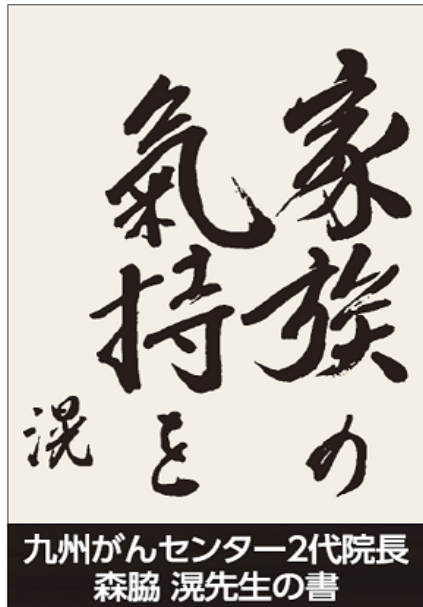 家族の
氣持を
滉
九州がんセンター2代院長
森脇 滉先生の書